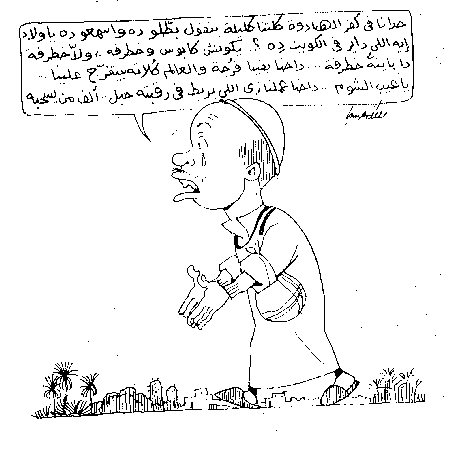 حدانا فى كفر الهنادوة كلتنا كليلة بنقول بطلوده واسمعوده يا ولاد
إيه اللى دار فى الكويت ده ؟ بيكونش كابوس وخطرفه ، ولا خطرفة
دا يابنه خطرفة ... داحنا بقينا فرجة والعالم كلاته بيتفرج علينا ...
يا عيب الشوم .. داحنا عملنا زى اللى بربط فى رقبته حبل .. ألف من يسحبه